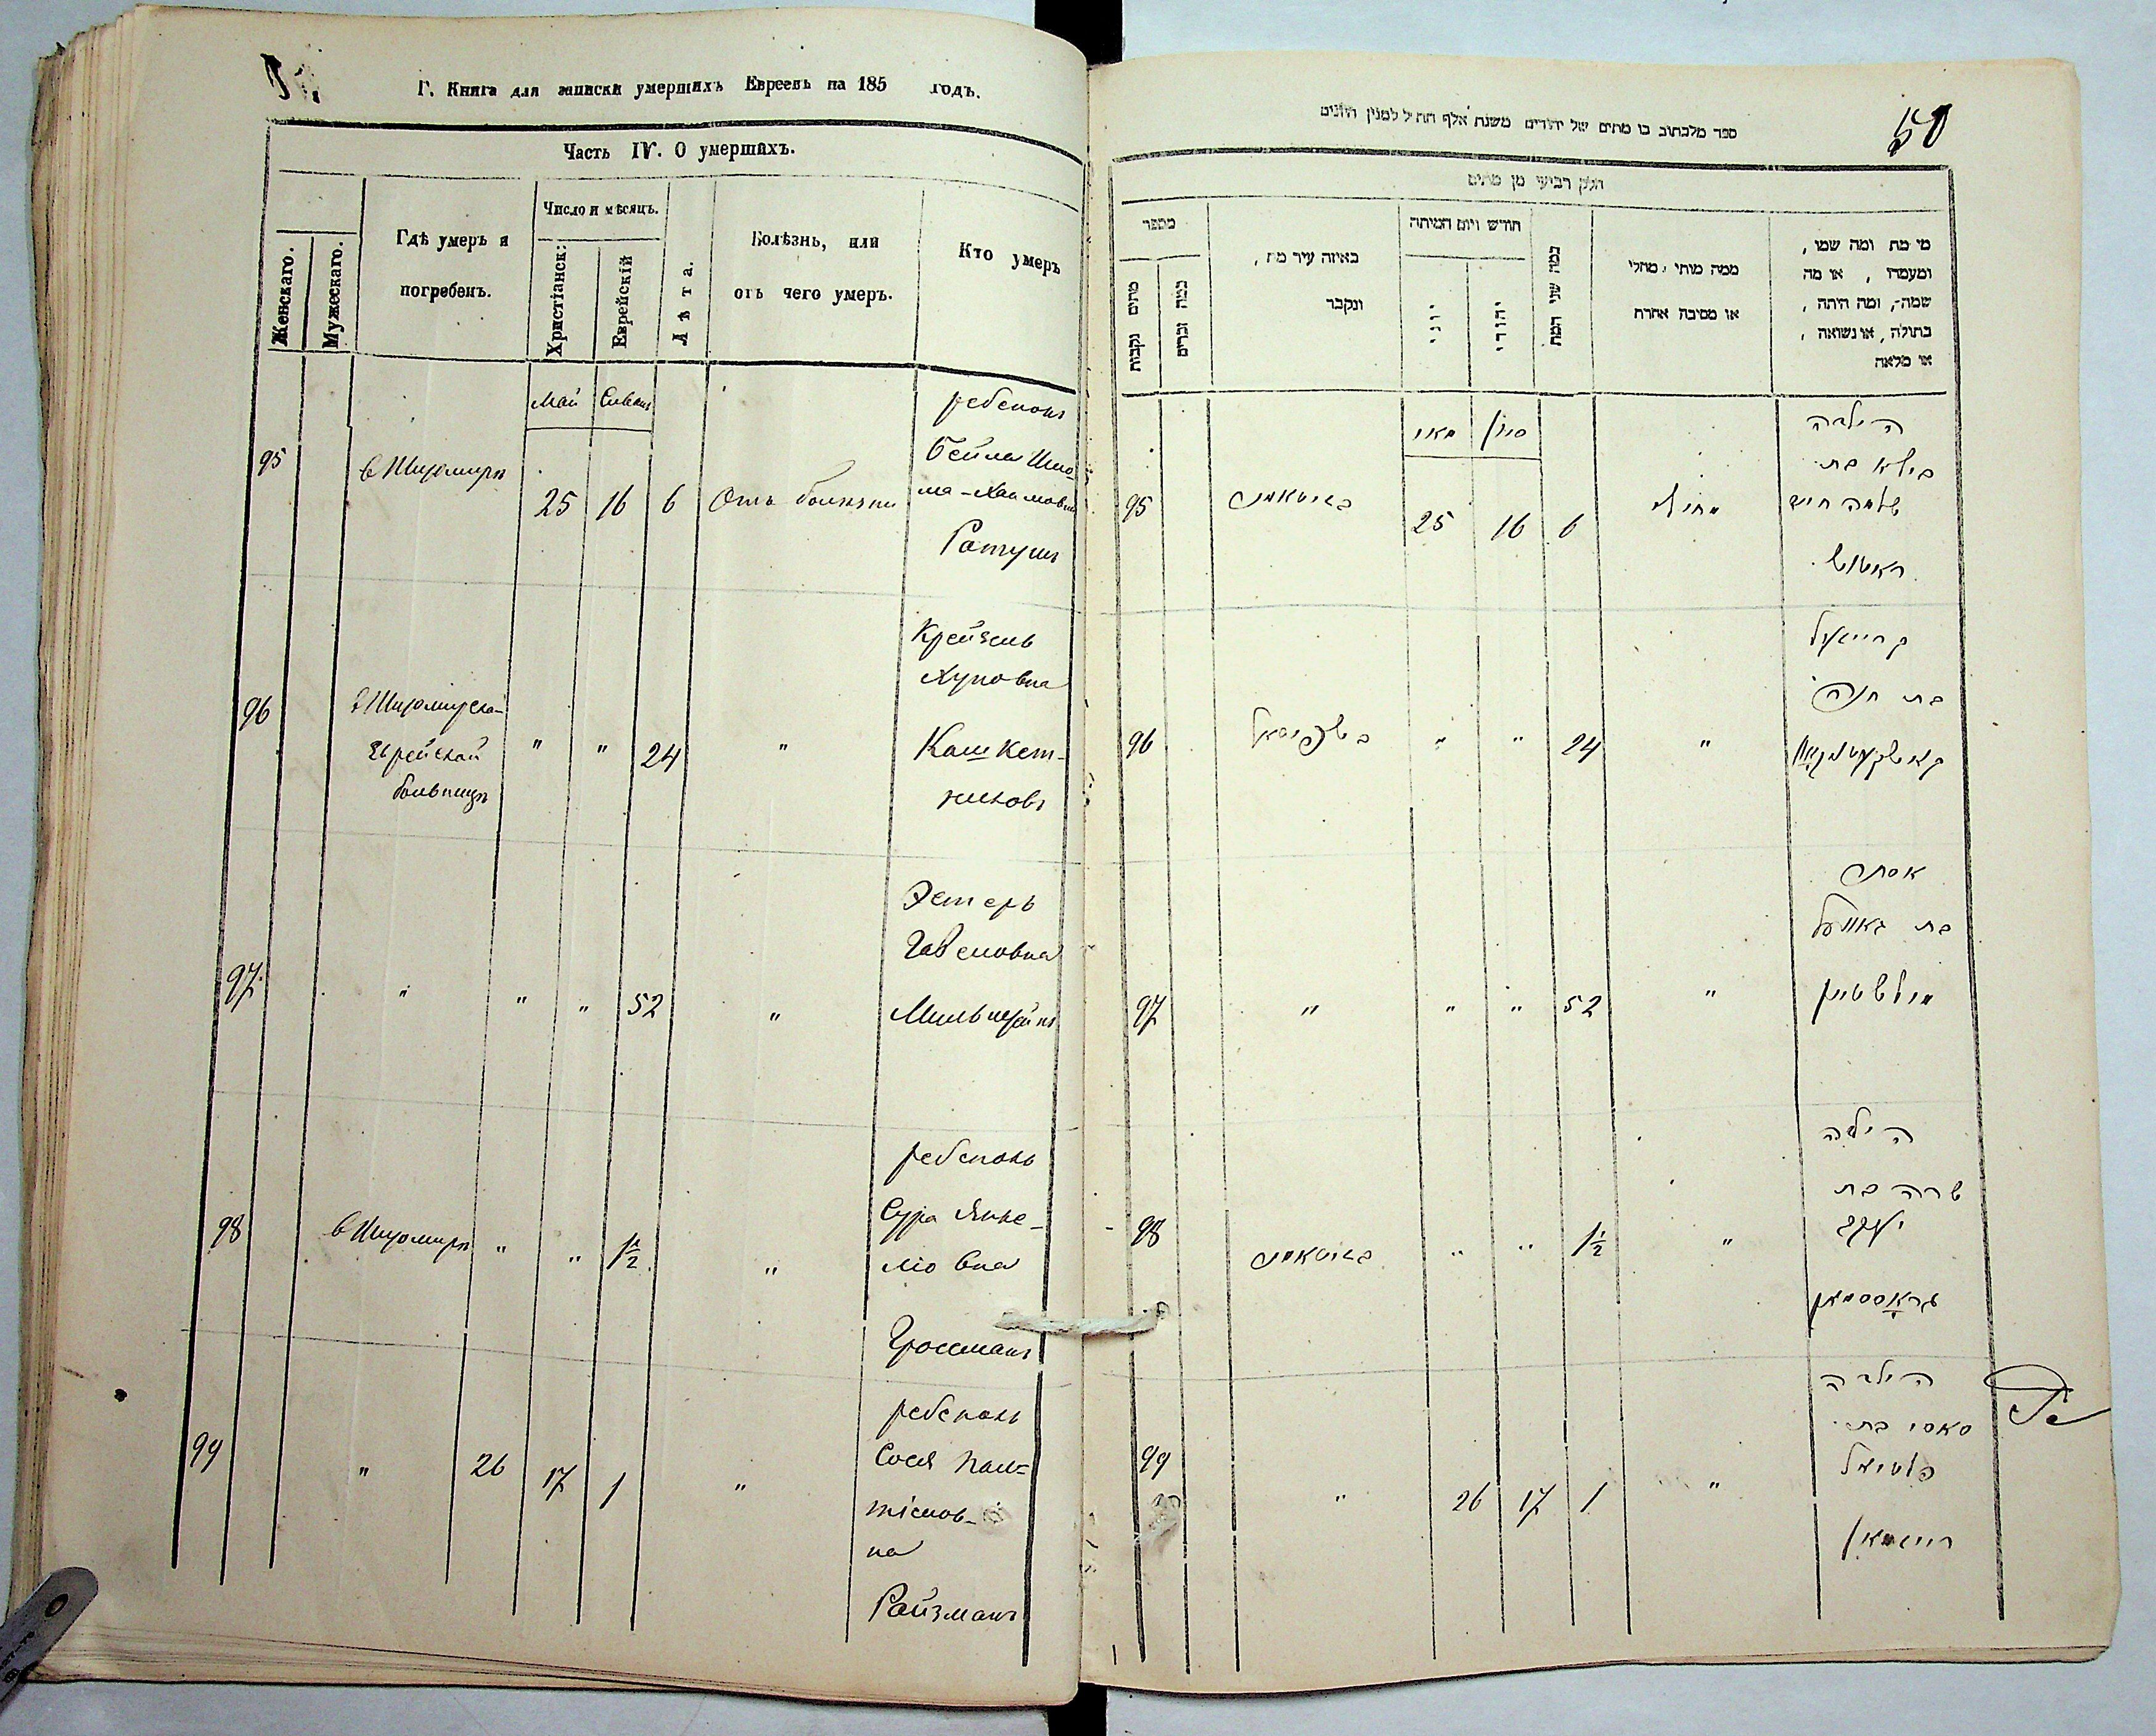 Г. Книга для записки умершихъ Евреевъ на 185 годъ.
Часть IV. О умершихъ.
Женскаго.
Мужескаго.
Гдѣ умеръ и
погребенъ.
Число и мѣсяцъ.
Христіанск:
Еврейскій
Лѣта.
Болѣзнь, или
отъ чего умеръ.
Кто умеръ
Май Сиванъ
95 в Житомирѣ 25 16 6 Отъ болѣзни
ребенокъ
Бейла Шло
ма-Хаимовна
Ратушъ
96 в Житомирской
Еврейской
больницѣ
" " 24 "
Крейзель
Хуновна
Кашкет-
никовъ
97 " " " 52 "
Эстеръ
Мильштейнъ
98 в Житомирѣ " " 1½ "
ребенокъ
Сура Янке-
левна
Гроссманъ
99 " 26 17 1 "
ребенокъ
Сося Пал=
тіелов-
на
Райзманъ
50
ספר מלכתוב בו מתים של יהודים משנת אלף תת"ל למנין היונים
חלק רביעי מן מתים
מספר
מתים נקבות
כמה זכרים
באיזה עיר מת,
ונקבר
חודש ויום המיתה
יוני
יהודי
כמה שני המת
ממה מותו, מחלי
או מסיבה אחרת
מי מת ומה שמו,
ומעמדו, או מה
שמה, ומה היתה,
בתולה, או נשואה,
או מלאה
מאי סיון
95 בזיטאמיר 25 16 6 מחולי
הילדה
ביילא בת
שלמה חיים
ראטוש
96 " " 24 "
קרייזעל
בת חנה
97 " " " 52 "
אסתר
מילשטיין
98 בזיטאמיר " " 1½ "
הילדה
שרה בת
יעקב
גראססמאן
99 " 26 17 1 "
הילדה
סאסי בת
פלטיאל
רייזמאן